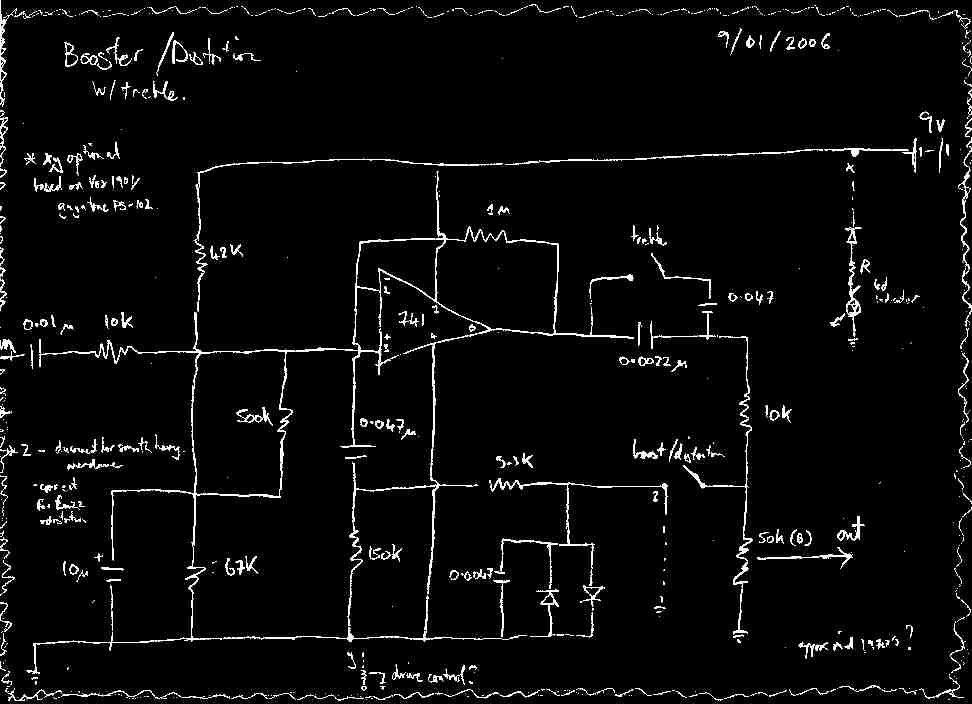 Booster / Distortion
w/ treble.
9/01/2006
9V
* xy optional
based on Vox 1901/
PS-102.
x
1M
treble
42K
R
led
indicator
0.047
2
7
741
6
+
3
4
0.01μ
10K
0.0022μ
500K
0.047μ
10K
* Z - disconnect for smooth heavy
- connect
for fuzz
distortion
5.3K
boost/distortion
Z
10μ
+
67K
150K
0.0047
50K (B)
out
y
drive control?
approx mid 1970's?